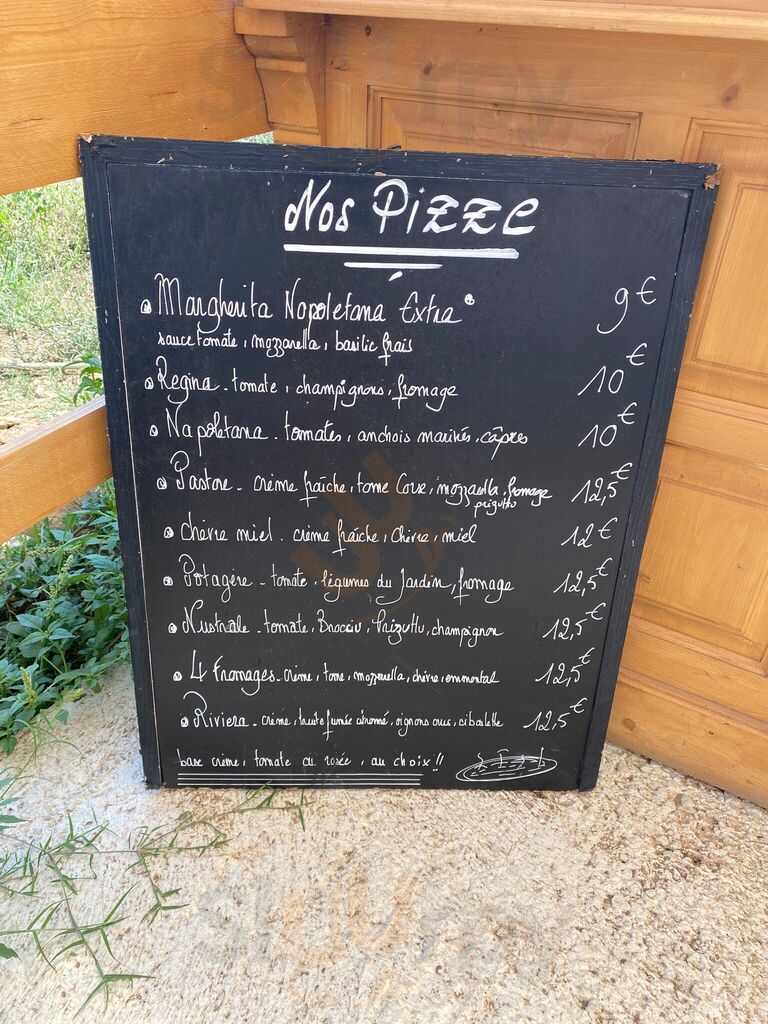 Nos Pizze
Margherita Napoletana Extra 9€
sauce tomate, mozzarella, basilic frais
Regina - tomate, champignons, fromage 10€
Napoletana - tomates, anchois marinés, câpres 10€
Pastore - crème fraîche, tome Corse, mozzarella, fromage 12,5€
prizuttu
chèvre miel - crème fraîche, chèvre, miel 12€
Potagère - tomate, légumes du Jardin, fromage 12,5€
Nustrale - tomate, Brocciu, Prizuttu, champignon 12,5€
4 Fromages - crème, tome, mozzarella, chèvre, emmental 12,5€
Riviera - crème, truite fumée, oignons crus, ciboulette 12,5€
base crème, tomate ou rosée, au choix!!